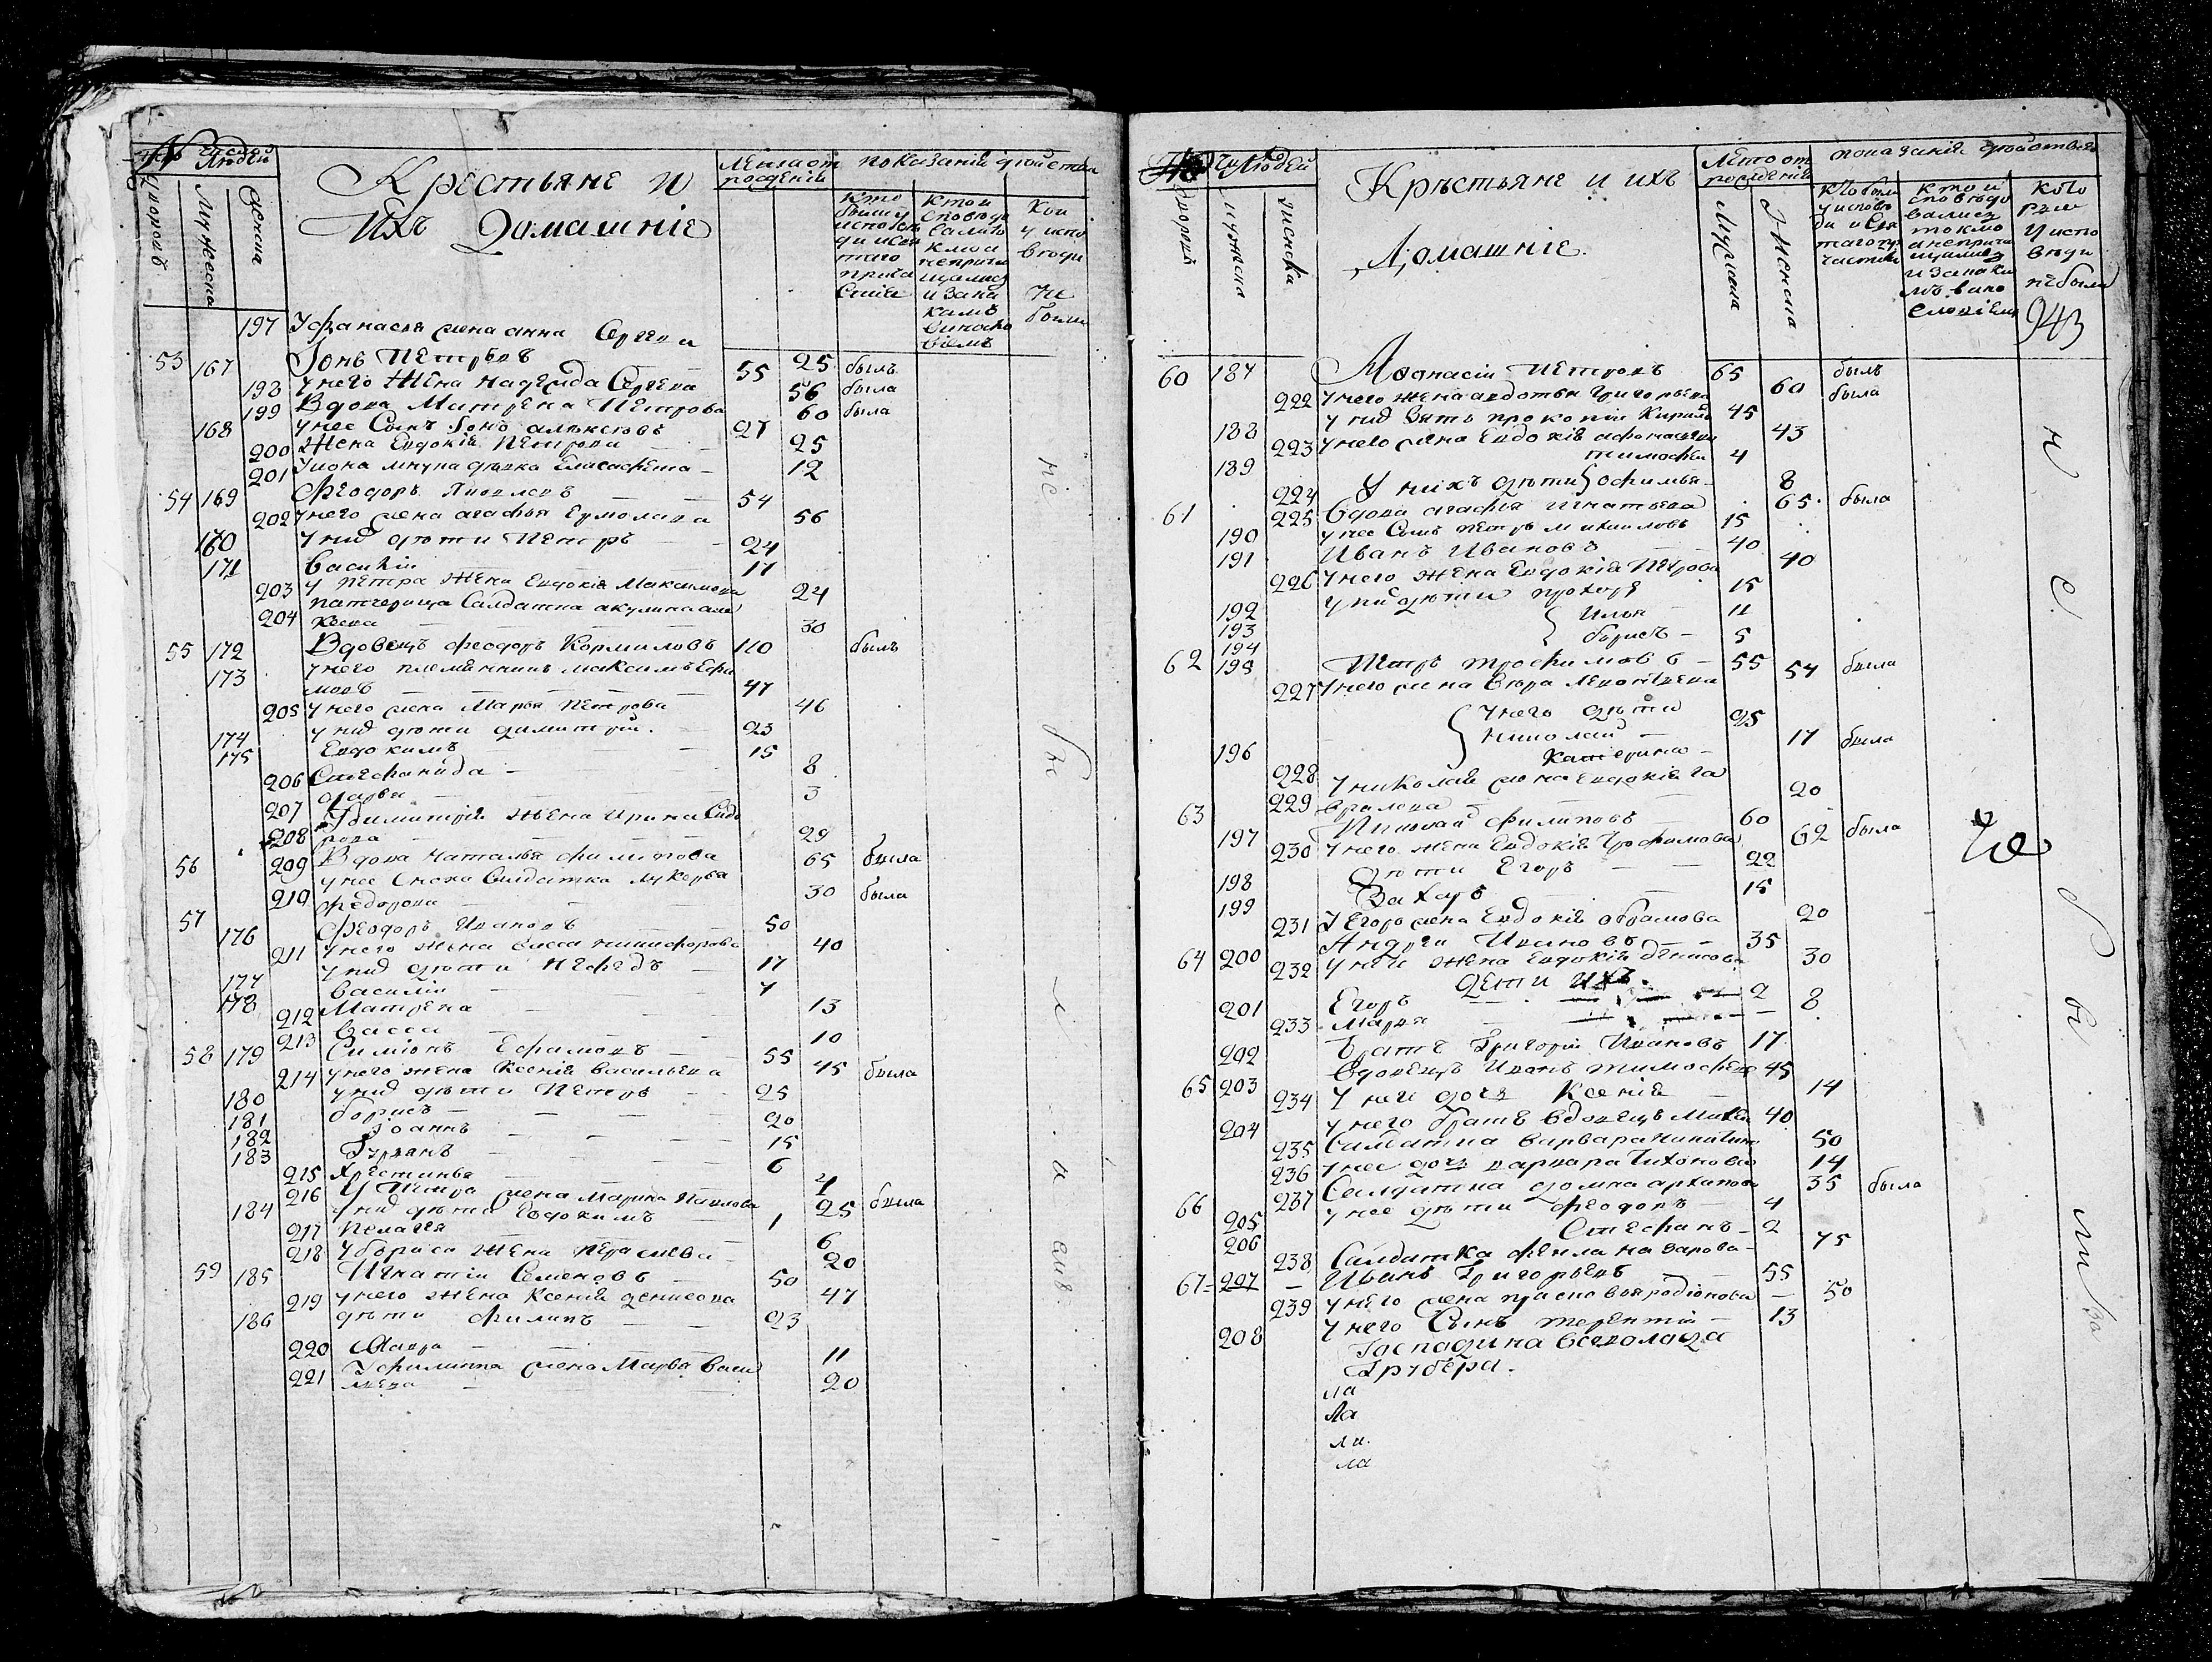 Число
Людей
Крестьяне и
Ихъ Домашніе
Лета от
рождения
показаніе действа
Дворовъ
Мужеска
Женска
кто
были у
исповѣ
ди и свя
таго
прича
стия
кто и
споведо
вались
а не прича
щались
и за ка
кимъ
винсло
виемъ
Кои
у испо
веди
не
были
197 У Фанасья жена анна Сергеева 25
53 167 Іонъ Петровъ 55 былъ
198 у него Жена надежда Сергева 56 была
199 Вдова Матрена Петрова 60 была
168 у нее Сынъ Іонъ алексеевъ 27
200 Жена Евдокія Петрова 25
201 у іона внука девка Елисафета 12
54 169 Феодоръ Яковлевъ 54
202 у него жена агафья Ермолаева 56
170 у них дети Петръ 24
171 Василій 17
203 у петра Жена Евдокія Максимова 24
204 патчерица Салдатка акулина але
ксева 30
55 172 Вдовецъ феодоръ Кормиловъ 110 былъ
173 у него племянникъ максимъ Ефи
мовъ 47
205 у него жена Марья Петрова 46
174 у них дети димитрій 23
175 Евдокимъ 15
206 Степанида 8
207 дарья 3
208 У димитрія Жена Ирина Сидо
рова 29
56 209 Вдова Наталья филипова 65 была
210 у нее сноха Салдатка лукерья
федорова 30 была
57 176 Феодоръ Ивановъ 50
211 у него жена васса никифорова 40
177 у них дети Нефедъ 17
178 Василій 7
212 Матрена 13
213 Васса 10
58 179 Симіонъ Ефимовъ 55
214 у него жена Ксенія Васильева 45 была
180 у них дети Петръ 25
181 борисъ 20
182 Іоаннъ 15
183 Гурьянъ 6
215 Христинья 4
216 У Петра жена Марина Павлова 25 была
184 у них дети Евдокимъ 1
217 Пелагея 6
218 У бориса Жена 20
59 185 Игнатіи Семеновъ 50
219 у него жена Ксенія денисова 47
186 дети филипъ 23
220 11
221 У филиппа жена Марья Васи
льева 20
не бы ли
Людей
Крѣстьяне и ихъ
Домашніе.
Лѣто от
рожденія
показаніе действа
дворовъ
мужска
женска
Мужеска
Женска
кто были
у исповѣ
ди и свя
таго
кто и
споведо
вались
токмо
а неприча
щались
и за каки
мъ вино
словіемъ
кото
рые
у испо
веди
не были
943
60 187 Афонасіи Петровъ 65 былъ
222 у него жена авдотья Григорьева 60 была
188 у них Зять прокопій Кирилъ 45
223 у него жена Евдокія афонасьева 43
189 тимофеи 4
224 У нихъ дети офимья 8
61 225 Вдова агафья Игнатьева 65 была
190 у нее Сынъ Петръ Михаиловъ 15
191 Иванъ Ивановъ 40
226 у него жена Евдокія Петрова 40
192 у них дети прохоръ 15
193 Илья 11
194 борисъ 5
62 195 Петръ трофимовъ 55
227 у него жена Вера Леонтьева 54 была
у него дети
196 николай 25
228 Катерина 17 была
229 У николая жена Евдокія Га
врилова 20
63 197 Николай филиповъ 60
230 у него жена Евдокія трофимова 62 была
198 дети Егоръ 22
199 Захаръ 15
231 У Егора жена Евдокія абрамова 20
64 200 Андреи Ивановъ 35
232 у него Жена Евдокія денисова 30
Дети ихъ.
201 Егоръ 2
233 Марья 8
202 братъ Григоріи Ивановъ 17
65 203 Вдовецъ Иванъ тимофеевъ 45
234 у него дочь Ксенія 14
204 у него братъ Вдовецъ 40
235 Салдатка варвара 50
236 у нее дочь варвара Тихонова 14
66 237 Салдатка домна архипова 35 была
205 у нее дети феодоръ 4
206 Стефанъ 2
238 Салдатка фекла назарова 75
67 207 Иванъ Григорьевъ 55
239 у него жена прасковья родіонова 50
208 у него Сынъ терентіи 13
Господина
Грубера.
ла
ла
ла
ла
Не бы ли